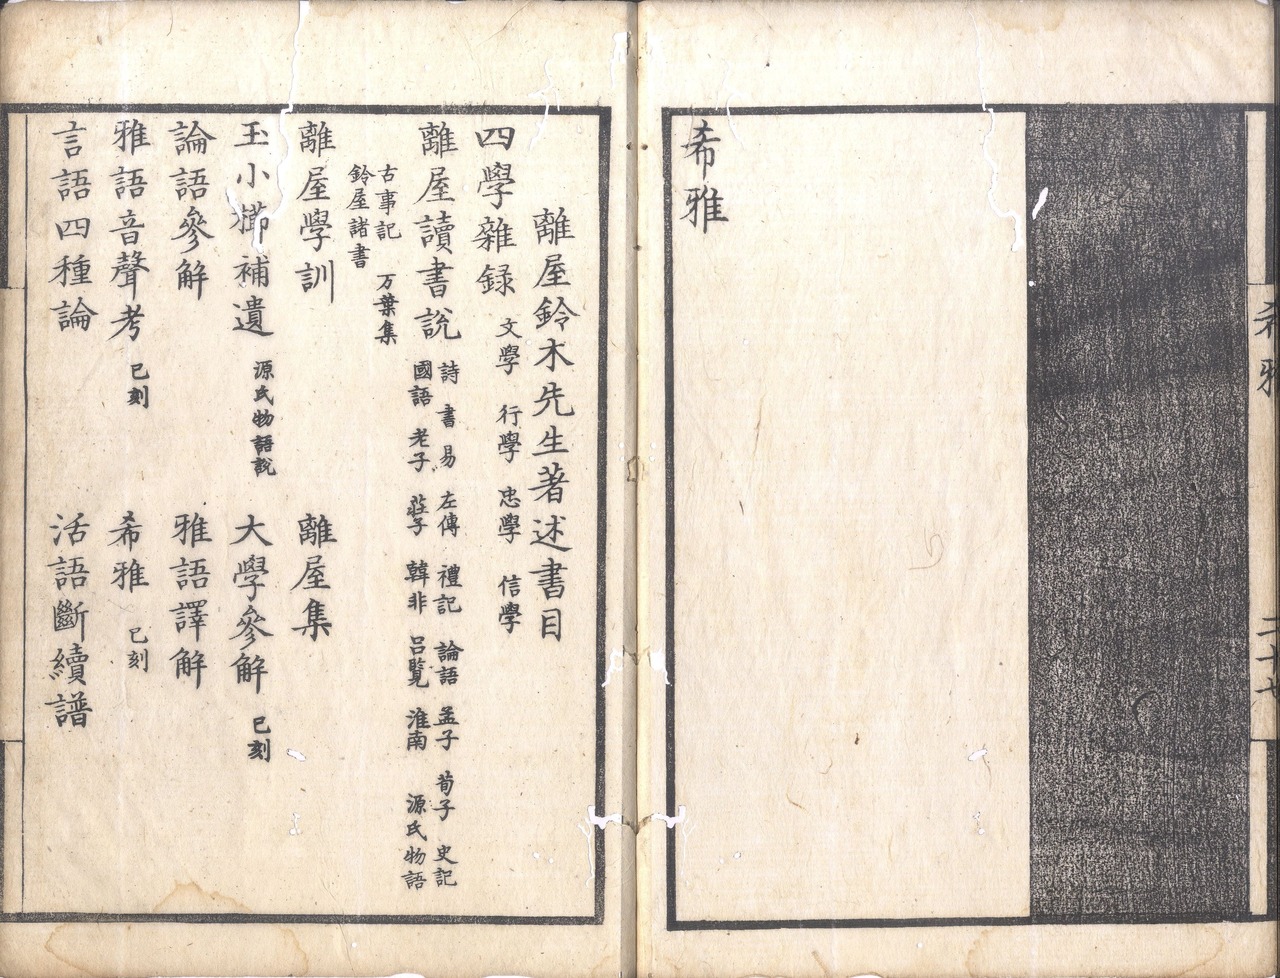 希雅
二十七
希雅
離屋鈴木先生著述書目
四學雜録 文學 行學 忠學 信學
離屋讀書説 詩 書 易 左傳 禮記 論語 孟子 荀子 史記
國語 老子 莊子 韓非 呂覧 淮南 源氏物語
古事記 万葉集
鈴屋諸書
離屋學訓 離屋集
玉小櫛補遺 源氏物語説 大學參解 已刻
論語參解 雅語譯解
雅語音聲考 已刻 希雅 已刻
言語四種論 活語斷續譜